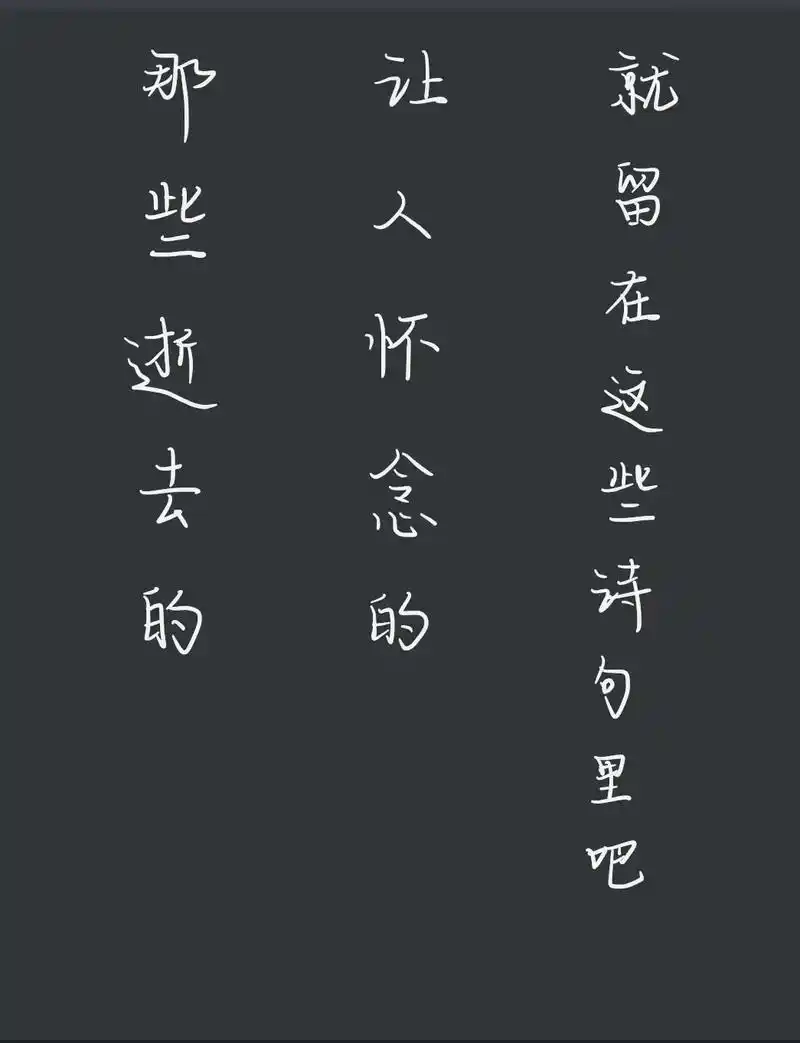 那些逝去的
让人怀念的
就留在这些诗句里吧